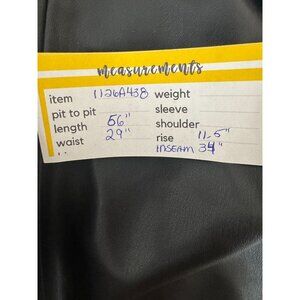 measurements
item 1126A438 weight
pit to pit sleeve
length 56" shoulder
waist 29" rise 11.5"
INSEAM 34"